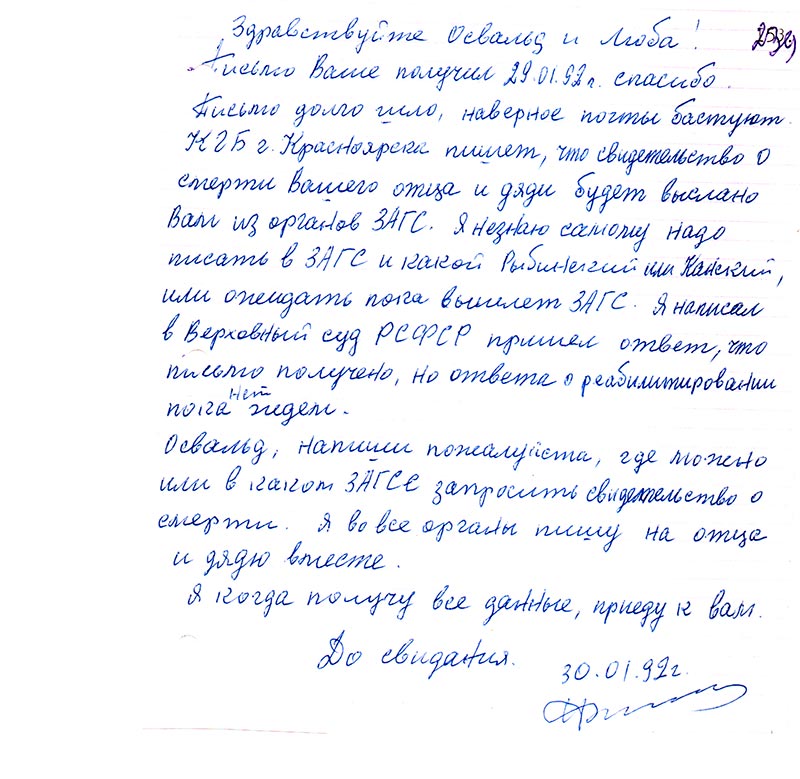 Здравствуйте Освальд и Люба!
Письмо Ваше получил 29.01.92г. спасибо.
Письмо долго шло, наверное почты бастуют.
КГБ г. Красноярска пишет, что свидетельство о
смерти Вашего отца и дяди будет выслано
Вам из органов ЗАГС. Я незнаю самому надо
писать в ЗАГС и какой Рыбинский или Канский,
или ожидать пока вышлет ЗАГС. Я написал
в Верховный суд РСФСР пришел ответ, что
письмо получено, но ответа о реабилитировании
пока нет ждем.
Освальд, напиши пожалуйста, где можно
или в каком ЗАГСе запросить свидетельство о
смерти. Я во все органы пишу на отца
и дядю вместе.
Я когда получу все данные, приеду к вам.
До свидания.
30.01.92г.